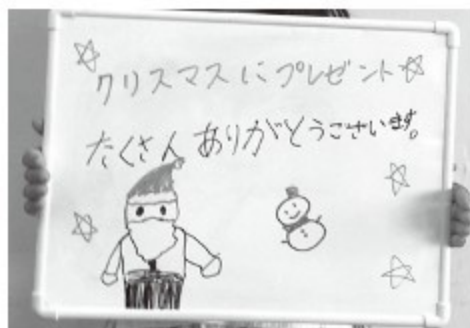 クリスマスにプレゼント
たくさんありがとうございます。